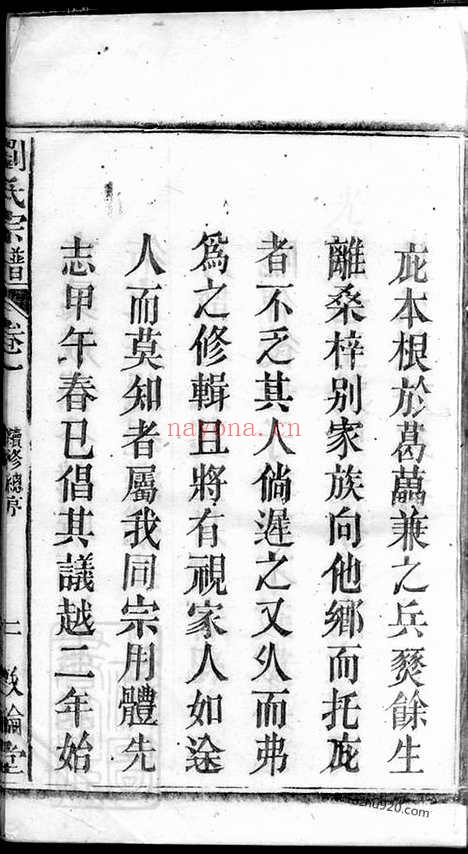 庇本根於葛藟兼之兵燹餘生
離桑梓别家族向他鄉而托庇
者不乏其人倘遲之又久而弗
爲之修輯且將有視家人如途
人而莫知者屬我同宗用體先
志甲午春已倡其議越二年始
劉氏宗譜 卷一 續修總序 二 敦倫堂
nayona.cn